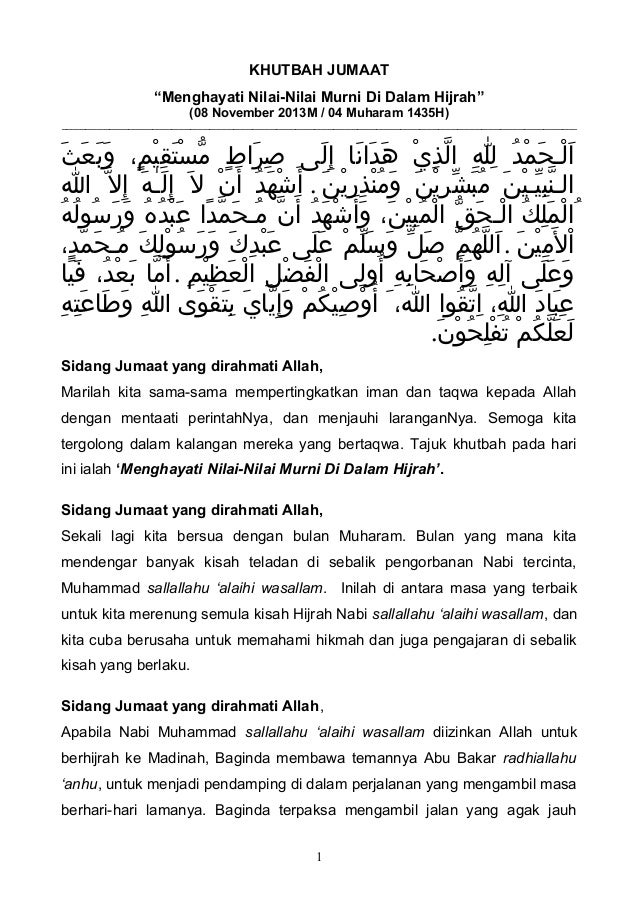 KHUTBAH JUMAAT
“Menghayati Nilai-Nilai Murni Di Dalam Hijrah”
(08 November 2013M / 04 Muharam 1435H)
اَلْـحَمْدُ لِلّٰهِ الَّذِيْ هَدَانَا إِلَى صِرَاطٍ مُّسْتَقِيْمٍ، وَبَعَثَ
النَّبِيِّـيْنَ مُبَشِّرِيْنَ وَمُنْذِرِيْنَ. أَشْهَدُ أَنْ لاَ إِلَـٰهَ إِلاَّ الله
اُلْمَلِكُ الْـحَقُّ الْمُبِيْنَ، وَأَشْهَدُ أَنَّ مُـحَمَّدًا عَبْدُهُ وَرَسُولُهُ
اْلأَمِيْنَ. اَللَّهُمَّ صَلِّ وَسَلِّمْ عَلَى عَبْدِكَ وَرَسُوْلِكَ مُـحَمَّدٍ،
وَعَلَى آلِهِ وَأَصْحَابِهِ أُولِى الْفَضْلِ الْعَظِيْمِ. أَمَّا بَعْدُ، فَيَا
عِبَادَ اللهِ، اِتَّقُوا اللهَ، أُوْصِيْكُمْ وَإِيَّايَ بِتَقْوَى اللهِ وَطَاعَتِهِ
لَعَلَّكُمْ تُفْلِحُوْنَ.
Sidang Jumaat yang dirahmati Allah,
Marilah kita sama-sama mempertingkatkan iman dan taqwa kepada Allah
dengan mentaati perintahNya, dan menjauhi laranganNya. Semoga kita
tergolong dalam kalangan mereka yang bertaqwa. Tajuk khutbah pada hari
ini ialah ‘Menghayati Nilai-Nilai Murni Di Dalam Hijrah’.
Sidang Jumaat yang dirahmati Allah,
Sekali lagi kita bersua dengan bulan Muharam. Bulan yang mana kita
mendengar banyak kisah teladan di sebalik pengorbanan Nabi tercinta,
Muhammad sallallahu ‘alaihi wasallam. Inilah di antara masa yang terbaik
untuk kita merenung semula kisah Hijrah Nabi sallallahu ‘alaihi wasallam, dan
kita cuba berusaha untuk memahami hikmah dan juga pengajaran di sebalik
kisah yang berlaku.
Sidang Jumaat yang dirahmati Allah,
Apabila Nabi Muhammad sallallahu ‘alaihi wasallam diizinkan Allah untuk
berhijrah ke Madinah, Baginda membawa temannya Abu Bakar radhiallahu
‘anhu, untuk menjadi pendamping di dalam perjalanan yang mengambil masa
berhari-hari lamanya. Baginda terpaksa mengambil jalan yang agak jauh
1